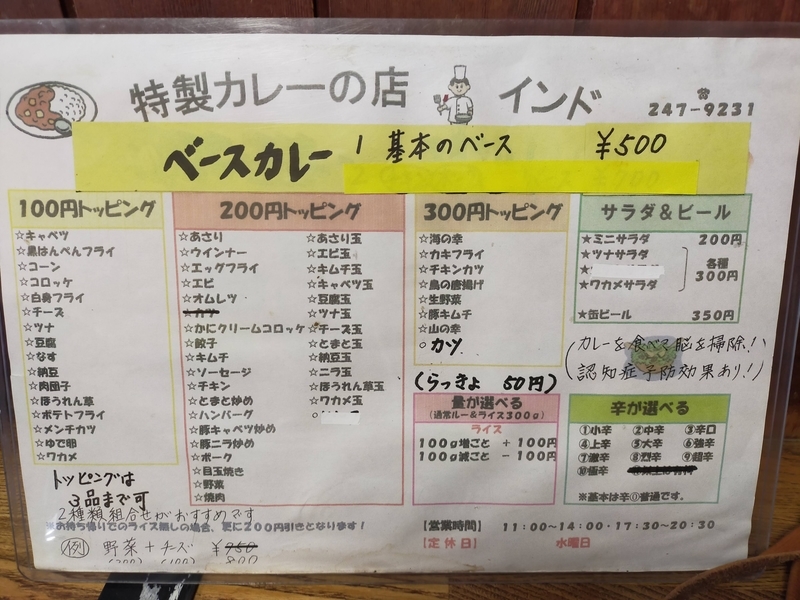 特製カレーの店 インド
☎ 247-9231
ベースカレー 1 基本のベース ¥500
100円トッピング
☆キャベツ
☆黒はんぺんフライ
☆コーン
☆コロッケ
☆白身フライ
☆チーズ
☆ツナ
☆豆腐
☆なす
☆納豆
☆肉団子
☆ほうれん草
☆ポテトフライ
☆メンチカツ
☆ゆで卵
☆ワカメ
200円トッピング
☆あさり
☆ウインナー
☆エッグフライ
☆エビ
☆オムレツ
☆カツ
☆かにクリームコロッケ
☆餃子
☆キムチ
☆ソーセージ
☆チキン
☆とまと炒め
☆ハンバーグ
☆豚キャベツ炒め
☆豚ニラ炒め
☆ポーク
☆目玉焼き
☆野菜
☆焼肉
☆あさり玉
☆エビ玉
☆キムチ玉
☆キャベツ玉
☆豆腐玉
☆ツナ玉
☆チーズ玉
☆とまと玉
☆納豆玉
☆ニラ玉
☆ほうれん草玉
☆ワカメ玉
300円トッピング
☆海の幸
☆カキフライ
☆チキンカツ
☆鳥の唐揚げ
☆生野菜
☆豚キムチ
☆山の幸
○カツ
(らっきょ 50円)
サラダ&ビール
★ミニサラダ 200円
★ツナサラダ
★
★ワカメサラダ
各種
300円
★缶ビール 350円
(カレーを食べて脳を掃除!!
認知症予防効果あり!)
量が選べる
(通常ルー&ライス300g)
ライス
100g増ごと +100円
100g減ごと -100円
辛が選べる
①小辛 ②中辛 ③辛口
④上辛 ⑤大辛 ⑥強辛
⑦激辛 ⑧烈辛 ⑨超辛
⑩極辛
※基本は辛○普通です。
トッピングは
3品まで可
2種類組合せがおすすめです
※お持ち帰りでのライス無しの場合、更に200円引きとなります!
例 野菜+チーズ ¥750
(200) (100) 800
【営業時間】 11:00~14:00・17:30~20:30
【定休日】 水曜日